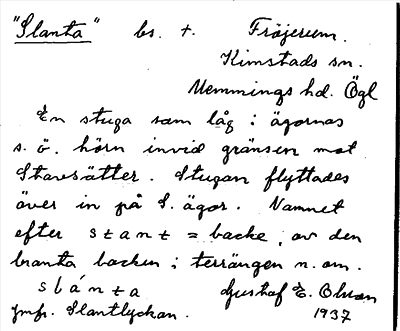 "Slanta" bs. t. Fröjerum.
Kimstads sn.
Memmings hd. Ögl
En stuga som låg i ägornas
s. ö. hörn invid gränsen mot
Staversätter. Stugan flyttades
över in på S. ägor. Namnet
efter slant = backe, av den
branta backen i terrängen n. om.
slánta Gustaf E. Olsson
Jmfr. Slantlyckan. 1937